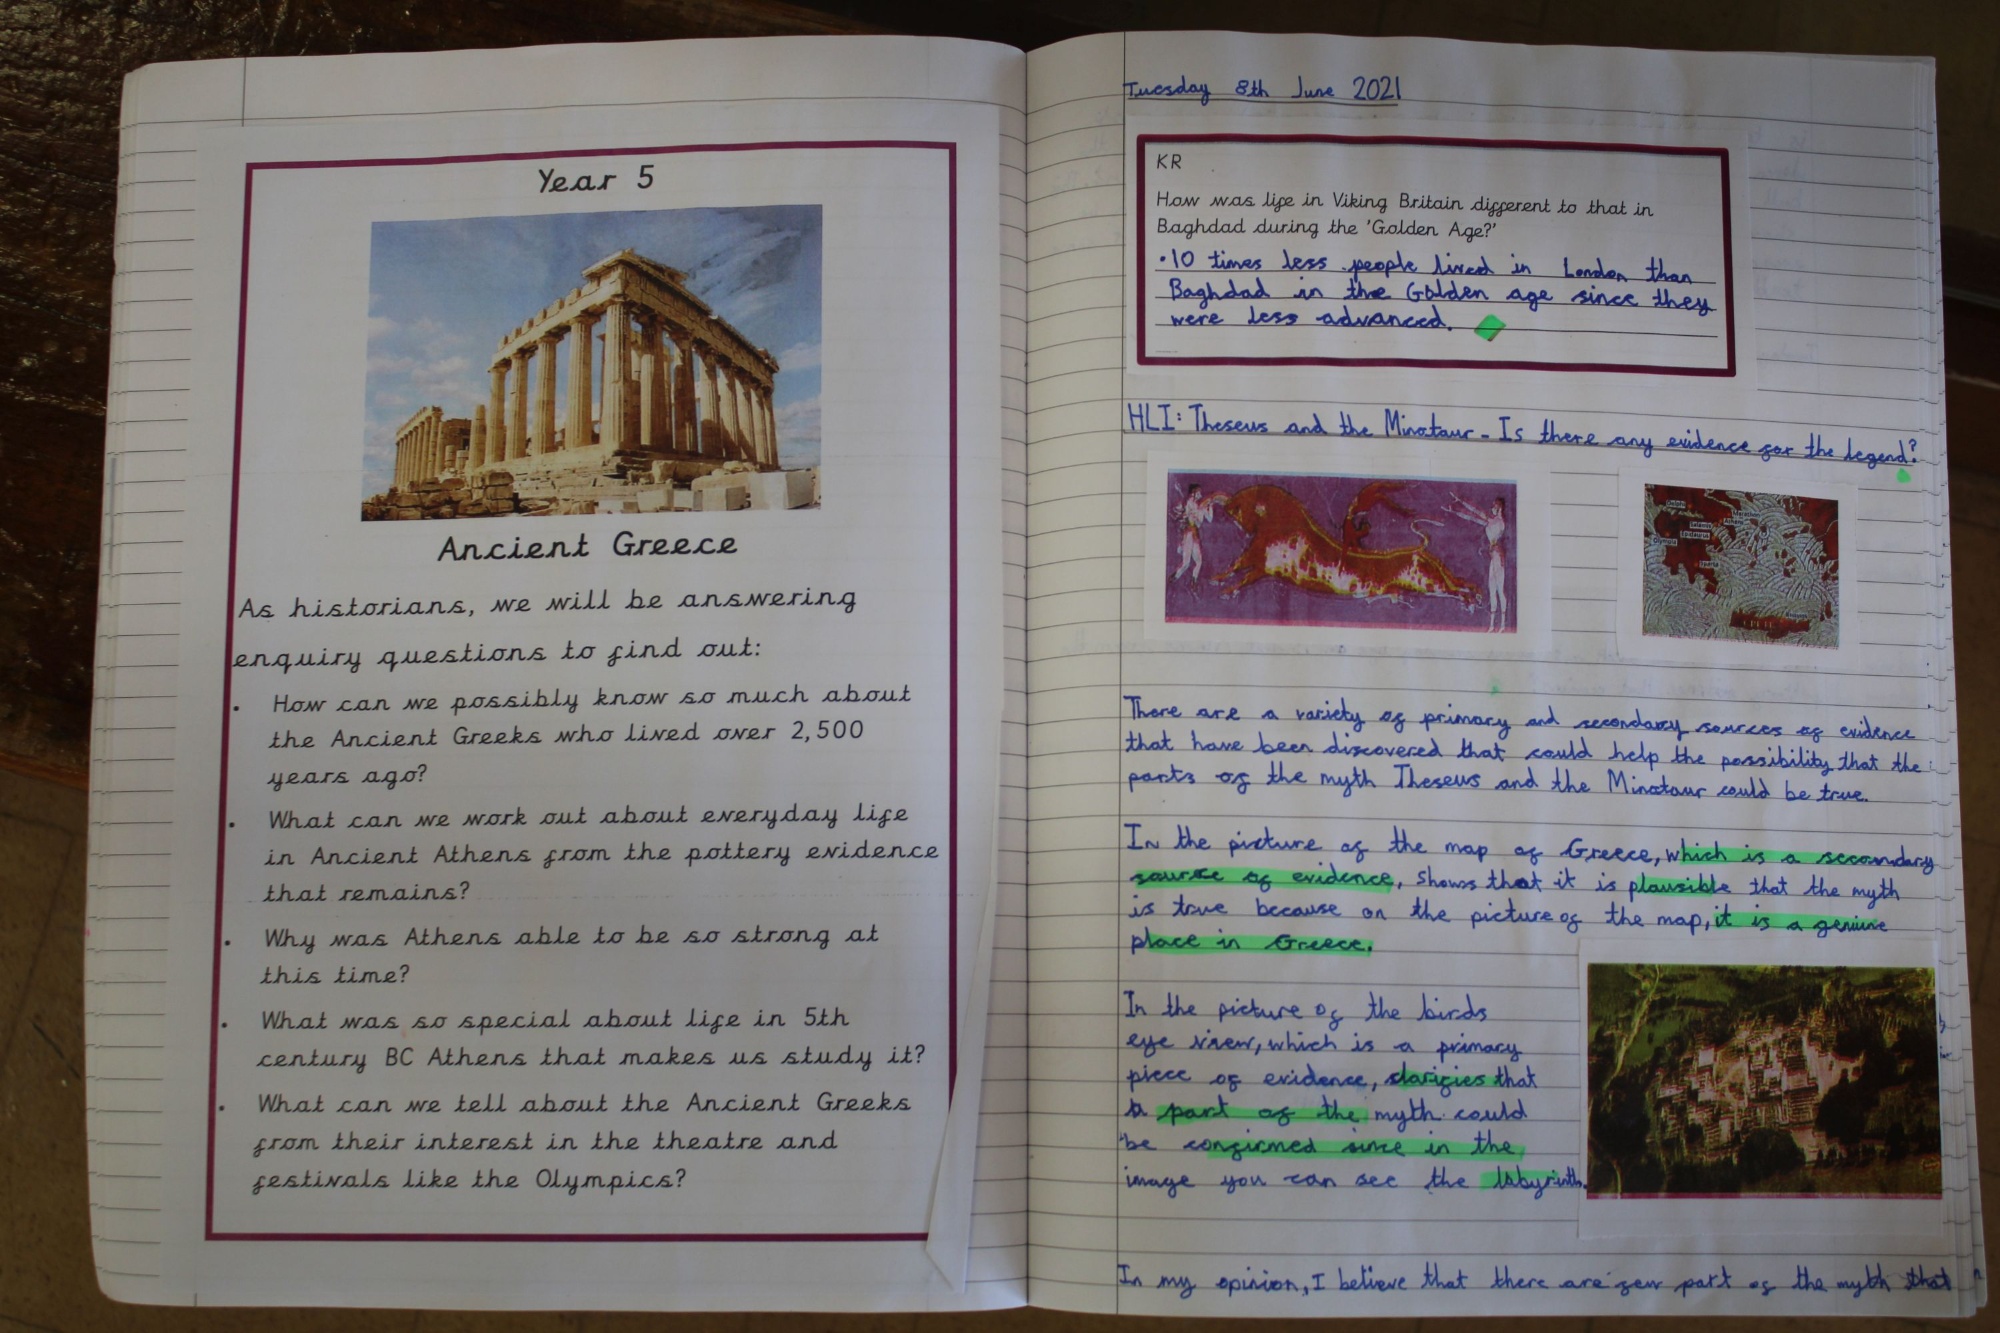 Year 5
Ancient Greece
As historians, we will be answering
enquiry questions to find out:
• How can we possibly know so much about
the Ancient Greeks who lived over 2,500
years ago?
• What can we work out about everyday life
in Ancient Athens from the pottery evidence
that remains?
• Why was Athens able to be so strong at
this time?
• What was so special about life in 5th
century BC Athens that makes us study it?
• What can we tell about the Ancient Greeks
from their interest in the theatre and
festivals like the Olympics?
Tuesday 8th June 2021
KR
How was life in Viking Britain different to that in
Baghdad during the 'Golden Age?'
• 10 times less people lived in London than
Baghdad in the Golden age since they
were less advanced.
HLI: Theseus and the Minotaur - Is there any evidence for the legend?
Delphi
Marathon
Salamis
Athens
Olympia
Epidaurus
Sparta
CRETE
There are a variety of primary and secondary sources of evidence
that have been discovered that could help the possibility that the
parts of the myth Theseus and the Minotaur could be true.
In the picture of the map of Greece, which is a secondary
source of evidence, shows that it is plausible that the myth
is true because on the picture of the map, it is a geniune
place in Greece.
In the picture of the birds
eye view, which is a primary
piece of evidence, clarifies that
part of the myth could
be confirmed since in the
image you can see the labyrinth.
In my opinion, I believe that there are few part of the myth that